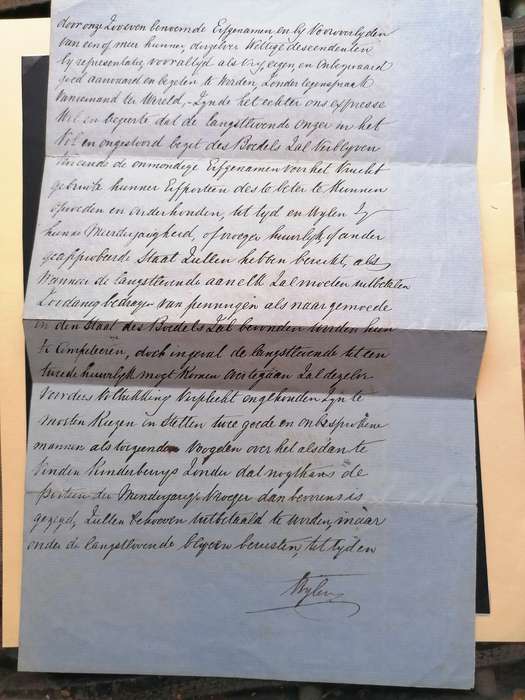 door onze zooeven benoemde Erfgenamen en bij Vooroverlyden
van een of meer hunner, derzelver Wettige descendenten
by representatie, voor altyd als vry, eigen en onbezwaard
goed aanvaard en bezeten te Worden, Zonder tegenspraak
van iemand ter Wereld, Zynde het echter ons expresse
Wil en begeerte dat de langstlevende onzer in het
Vol en ongestoord bezit des Boedels Zal Verblyven
de onmondige Erfgenamen voor het Vrucht
gebruik hunner Erfportien des te beter te Kunnen
opvoeden en onderhouden, tot tyd en Wylen Zy
hunne Meerderjarigheid, of vroeger huwelyk of ander
geapprobeerde Staat Zullen hebben bereikt, als
Wanneer de langstlevende aan elk Zal moeten uitbetalen
Zoodanig bedrag van penningen als naar gemoede
in den Staat des Boedels Zal bevonden worden hun
te Competeeren, doch ingeval de langstlevende tot een
tweede huwelyk mogt Komen overtegaan Zal dezelve
Voor dies Voltrekking Verplicht en gehouden Zyn te
moeten Kiezen en Stellen twee goede en onbesprokene
mannen als toeziende Voogden over het alsdan te
Vinden Kinderbewys Zonder dat nogthans de
portien der Minderjarige Vroeger dan bevorens is
gezegd, Zullen behoeven uitbetaald te Worden, maar
onder de langstlevende blyven berusten tot tyd en
Wylen